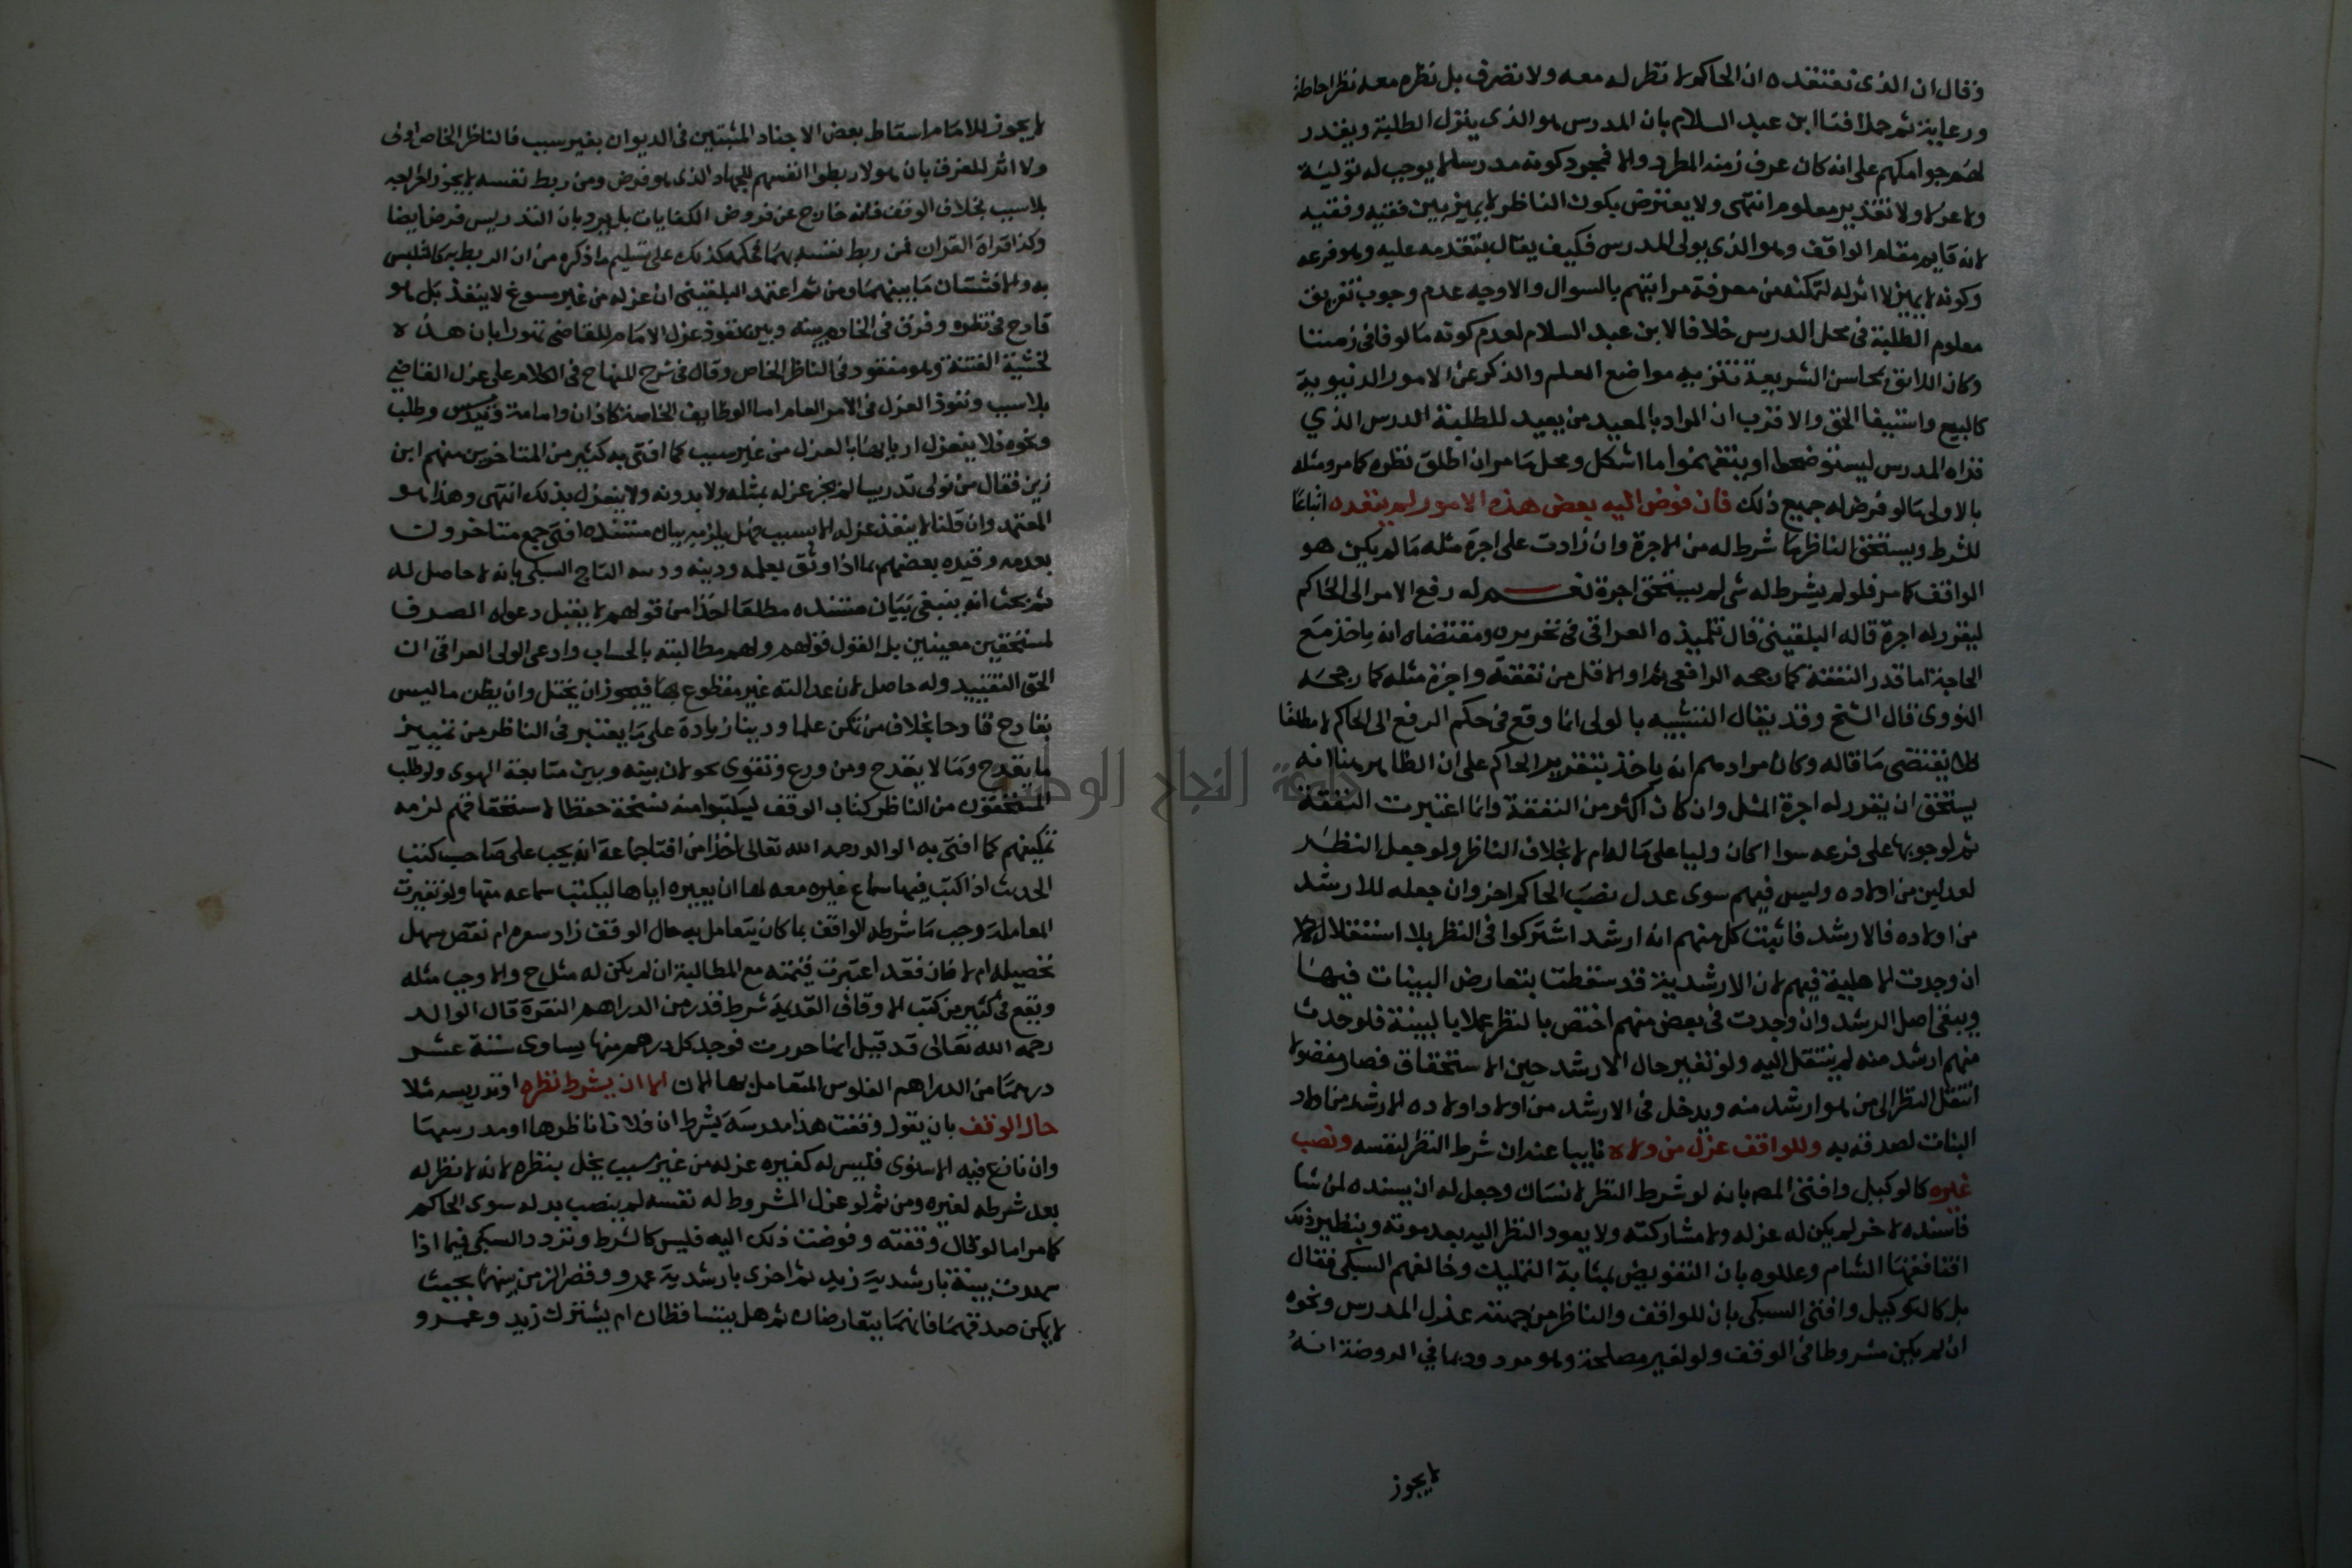 وقال ان الذى نعتقده ان الحاكم لا نظر له معه ولا تصرف بل نظره معه نظر احاطة
ورعاية ثم حمل افتا ابن عبد السلام بان المدرس هو الذى ينزل الطلبة ويقدر
لهم جوامكهم على انه كان عرف زمنه المطرد والا فمجرد كونه مدرسا لا يوجب له تولية
ولا عزلا ولا تقدير معلوم انتهى ولا يعترض بكون الناظر لا يميز بين فقيه وفقيه
لانه قايم مقام الواقف وهو الذى يولى المدرس فكيف يقال بتقدمه عليه وهو فرعه
وكونه لا يميز لا اثر له لتمكنه من معرفة مراتبهم بالسوال والاوجه عدم وجوب تفريق
معلوم الطلبة فى محل الدرس خلافا لابن عبد السلام لعدم كونه مالوفا فى زمننا
وكان اللائق بمحاسن الشريعة تنزيه مواضع العلم والذكر عن الامور الدنيوية
كالبيع واستيفا الحق والاقرب ان المراد بالمعيد من يعيد للطلبة الدرس الذي
قراه المدرس ليستوضحوا او يتفهموا ما اشكل ومحل ما مر ان اطلق نظره كما مر ومثله
بالاولى ما لو فوض له جميع ذلك فان فوض اليه بعض هذه الامور لم يتعده اتباعا
للشرط ويستحق الناظر ما شرط له من الاجرة وان زادت على اجرة مثله ما لم يكن هو
الواقف كما مر فلو لم يشرط له شى لم يستحق اجرة نعم له رفع الامر الى الحاكم
ليقرر له اجرة قاله البلقينى قال تلميذه العراقى فى تحريره ومقتضاه انه ياخذ مع
الحاجة اما قدر النفقة كما رجحه الرافعى ثم او الاقل من نفقته واجرة مثله كما رجحه
النووى قال الشيخ وقد يقال التشبيه بالولى انما وقع فى حكم الرفع الى الحاكم لا مطلقا
فلا يقتضى ما قاله وكان مرادهم انه ياخذ بتقرير الحاكم على ان الظاهر هنا انه
يستحق ان يقرر له اجرة المثل وان كان اكثر من النفقة وانما اعتبرت النفقة
ثم لوجوبها على فرعه سوا اكان وليا على ماله ام لا بخلاف الناظر ولو جعل النظر
لعدلين من اولاده وليس فيهم سوى عدل نصب الحاكم اخر وان جعله للارشد
من اولاده فالارشد فاثبت كل منهم انه ارشد اشتركوا فى النظر بلا استقلال
ان وجدت الاهلية فيهم لان الارشدية قد سقطت بتعارض البينات فيها
وبقى اصل الرشد وان وجدت فى بعض منهم اختص بالنظر عملا بالبينة فلو حدث
منهم ارشد منه لم ينتقل اليه ولو تغير حال الارشد حين الاستحقاق فصار مفضولا
انتقل النظر الى من هو ارشد منه ويدخل فى الارشد من اولاد اولاده الارشد من اولاد
البنات لصدقه به وللواقف عزل من ولاه نايبا عنه ان شرط النظر لنفسه ونصب
غيره كالوكيل وافتى المص بانه لو شرط النظر لانسان وجعل له ان يسنده لمن شا
فاسنده لاخر لم يكن له عزله ولا مشاركته ولا يعود النظر اليه بعد موته وبنظير ذلك
افتى فقها الشام وعللوه بان التفويض بمثابة التمليك وخالفهم السبكى فقال
بل كالتوكيل وافتى السبكى بان للواقف والناظر من جهته عزل المدرس ونحوه
ان لم يكن مشروطا فى الوقف ولو لغير مصلحة وهو مردود بما في الروضة انه
لا يجوز
لا يجوز للامام اسقاط بعض الاجناد المثبتين فى الديوان بغير سبب فالناظر الخاص اولى
ولا اثر للفرق بان هولا ربطوا انفسهم للجهاد الذى هو فرض ومن ربط نفسه لا يجوز اخراجه
بلا سبب بخلاف الوقف فانه خارج عن فروض الكفايات بل يرد بان التدريس فرض ايضا
وكذا قراة القران فمن ربط نفسه بهما فحكمه كذلك على تسليم ما ذكره من ان الربط به كالتلبس
به والا فشتان ما بينهما ومن ثم اعتمد البلقينى ان عزله من غير مسوغ لا ينفذ بل هو
قادح فى نظره وفرق فى الخادم بينه وبين نفوذ عزل الامام للقاضى تهورا بان هذه
لخشية الفتنة وهو مفقود فى الناظر الخاص وقال فى شرح المنهاج فى الكلام على عزل القاضي
بلا سبب ونفوذ العزل فى الامر العام اما الوظايف الخاصة كاذان وامامة وتدريس وطلب
ونحوه فلا ينعزل اربابها بالعزل من غير سبب كما افتى به كثير من المتاخرين منهم ابن
رزين فقال من تولى تدريسا لم يجز عزله بمثله ولا بدونه ولا ينعزل بذلك انتهى وهذا هو
المعتمد وان قلنا لا ينفذ عزله الا بسبب فهل يلزمه بيان مستنده افتى جمع متاخرون
بعدمه وقيده بعضهم بما اذا وثق بعلمه ودينه ورده التاج السبكى بانه لا حاصل له
ثم بحث انه ينبغى بيان مستنده مطلقا اخذا من قولهم لا يقبل دعواه الصرف
لمستحقين معينين بل القول قولهم ولهم مطالبته بالحساب وادعى الولى العراقى ان
الحق التقييد وله حاصل لان عدالته غير مقطوع بها فيجوز ان يختل وان يظن ما ليس
بقادح قادحا بخلاف من تمكن علما ودينا زيادة على ما يعتبر فى الناظر من تمييز
ما يقدح وما لا يقدح ومن ورع وتقوى يحولان بينه وبين متابعة الهوى ولو طلب
المستحقون من الناظر كتاب الوقف ليكتبوا منه نسخة حفظا لاستحقاقهم لزمه
تمكينهم كما افتى به الوالد رحمه الله تعالى اخذا من افتا جماعة انه يجب على صاحب كتب
الحديث اذا كتب فيها سماع غيره معه لها ان يعيره اياها ليكتب سماعه منها ولو تغيرت
المعاملة وجب ما شرطه الواقف بما كان يتعامل به حال الوقف زاد سعره ام نقص سهل
تحصيله ام لا فان فقد اعتبرت قيمته مع المطالبة ان لم يكن له مثل ح والا وجب مثله
ويقع فى كثير من كتب الاوقاف القديمة شرط قدر من الدراهم النقرة قال الوالد
رحمه الله تعالى قد قيل انها حررت فوجد كل درهم منها يساوى ستة عشر
درهما من الدراهم الفلوس المتعامل بها الان الا ان يشرط نظره او تدريسه مثلا
حال الوقف بان يقول وقفت هذا مدرسة بشرط ان فلانا ناظرها او مدرسها
وان نازع فيه الاسنوى فليس له كغيره عزله من غير سبب يخل بنظره لانه لا نظر له
بعد شرطه لغيره ومن ثم لو عزل المشروط له نفسه لم ينصب بدله سوى الحاكم
كما مر اما لو قال وقفته وفوضت ذلك اليه فليس كالشرط وتردد السبكى فيما اذا
شهدت بينة بارشدية زيد ثم اخرى بارشدية عمرو وقصر الزمن بينهما بحيث
لا يمكن صدقهما فانهما يتعارضان ثم هل يتساقطان ام يشترك زيد وعمرو